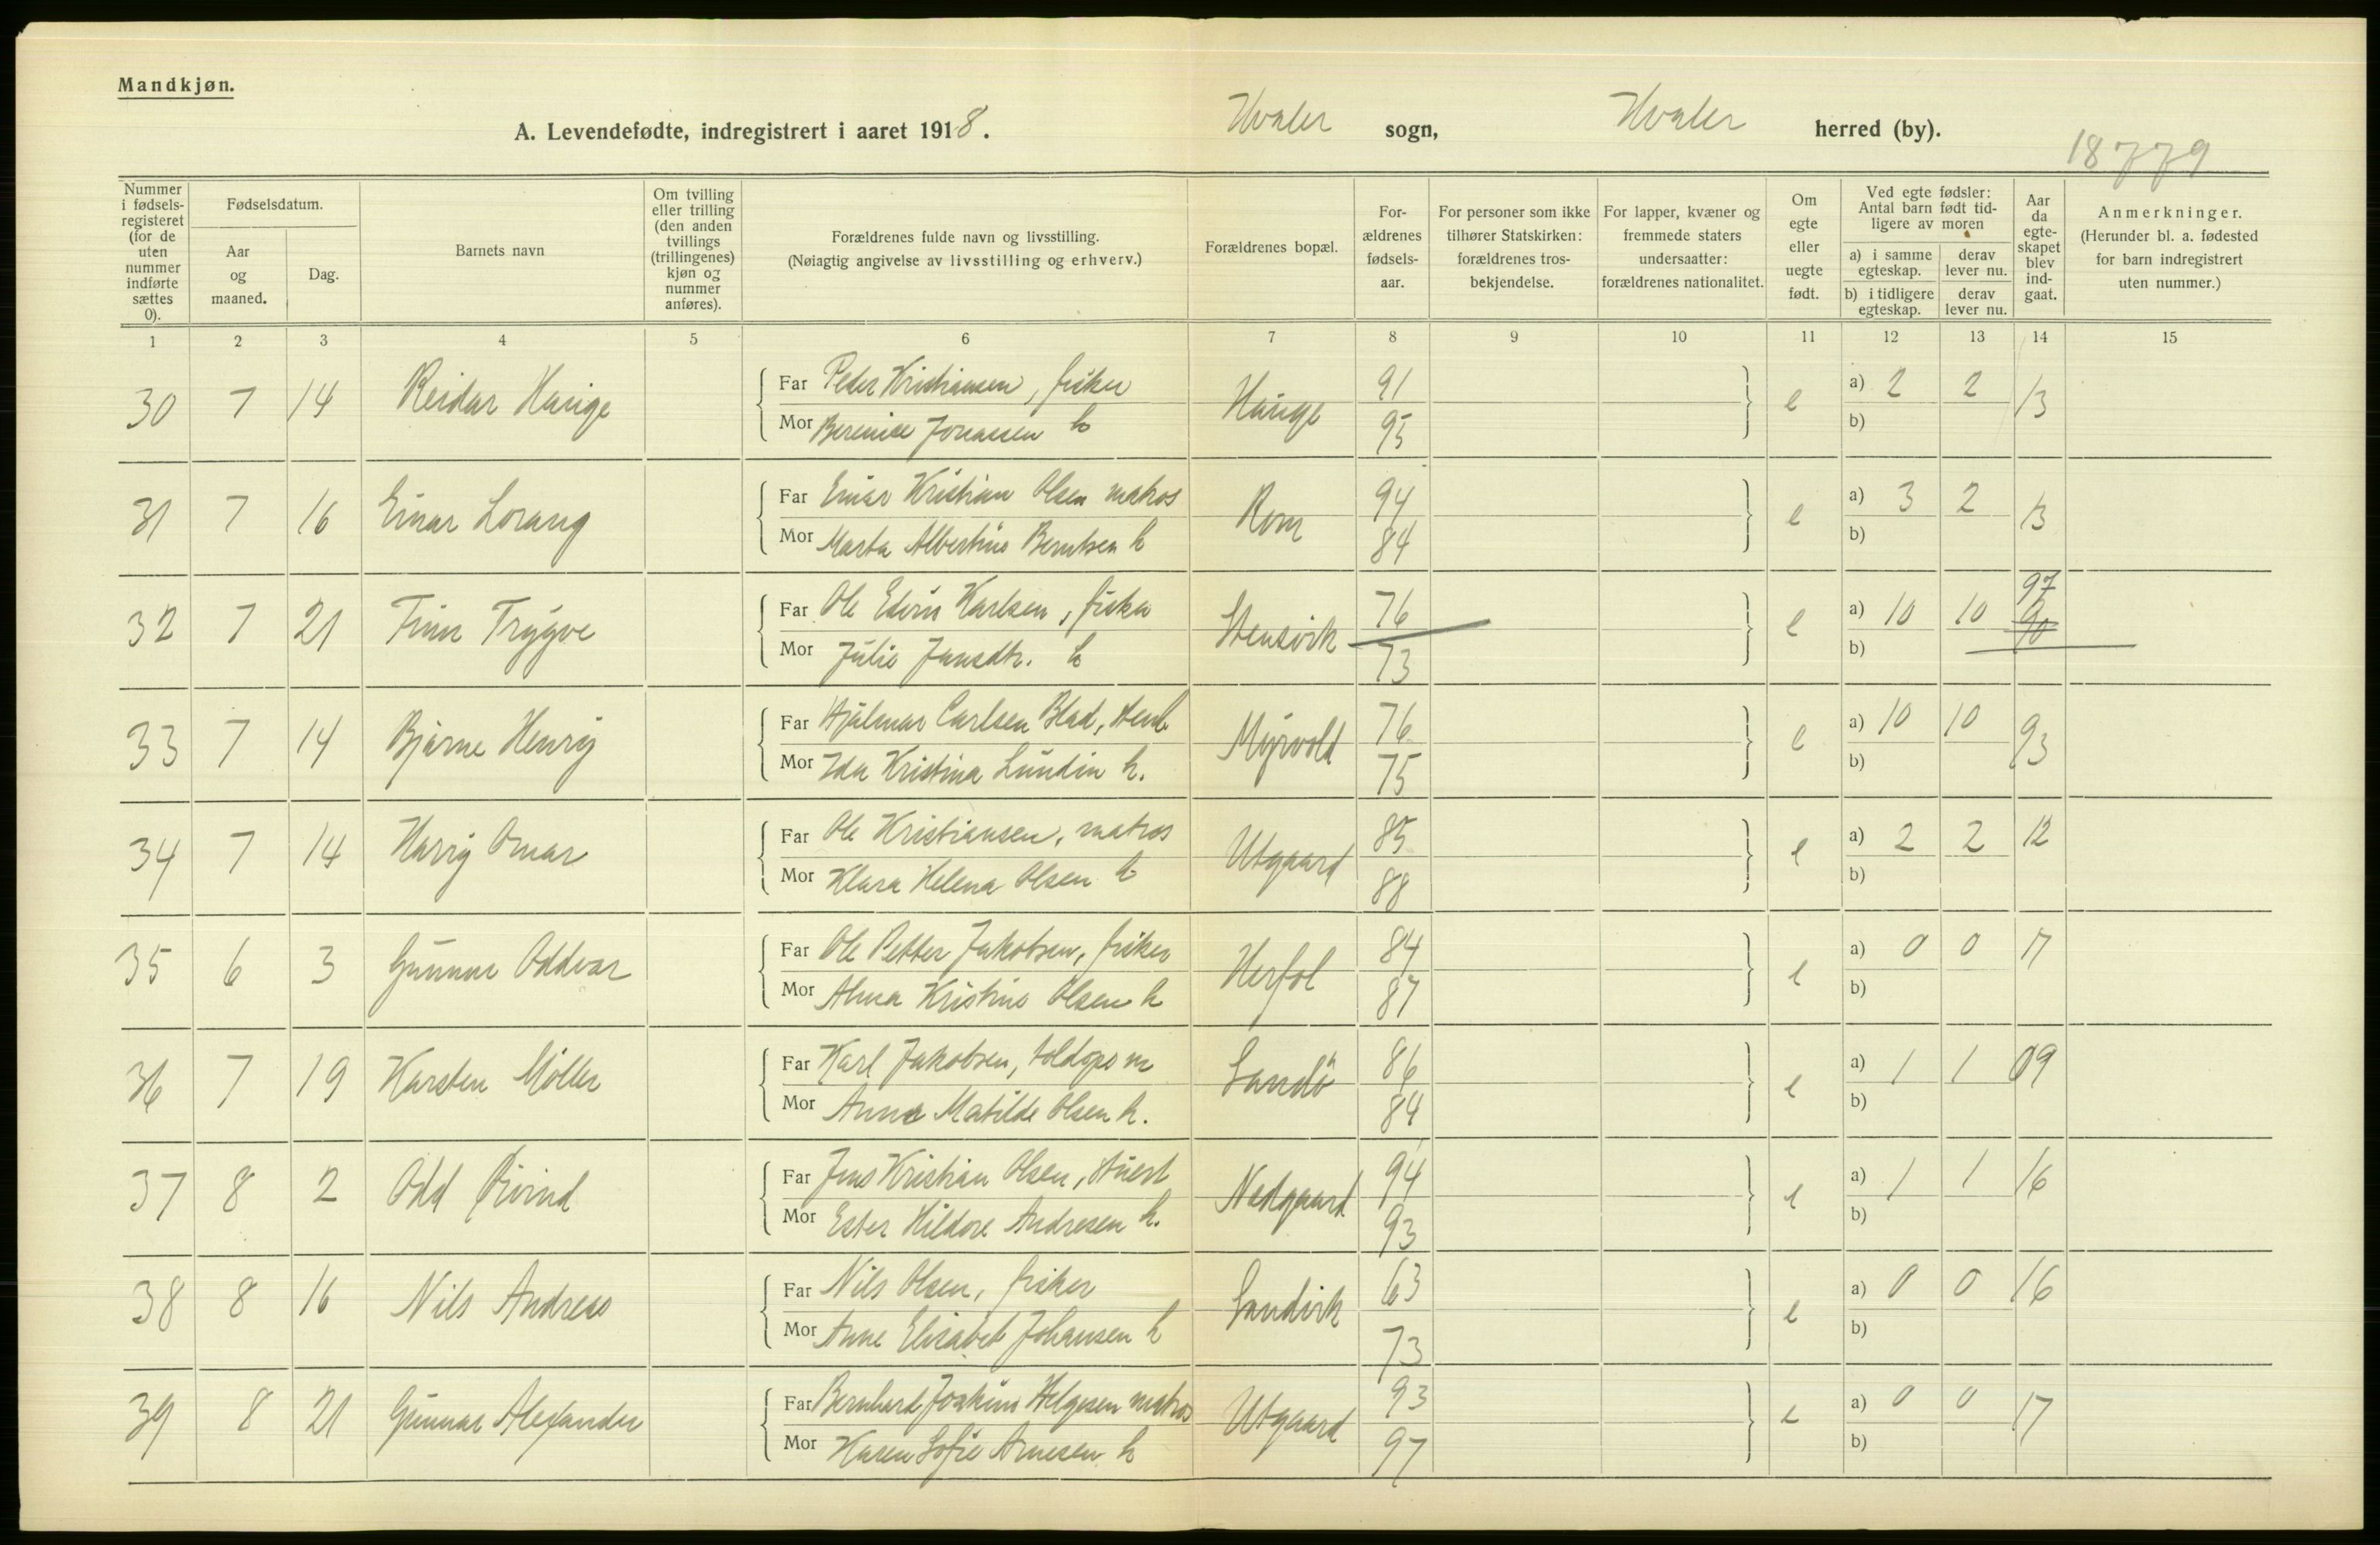 Mandkjøn.
A. Levendefødte, indregistrert i aaret 1918.
Hvaler sogn, Hvaler herred (by).
18779
Nummer i fødsels-registeret (for de uten nummer indførte sættes 0).
Fødselsdatum.
Aar og maaned.
Dag.
Barnets navn
Om tvilling eller trilling (den anden tvillings (trillingenes) kjøn og nummer anføres).
Forældrenes fulde navn og livsstilling.
(Nøiagtig angivelse av livsstilling og erhverv.)
Forældrenes bopæl.
For-ældrenes fødsels-aar.
For personer som ikke tilhører Statskirken: forældrenes tros-bekjendelse.
For lapper, kvæner og fremmede staters undersaatter: forældrenes nationalitet.
Om egte eller uegte født.
Ved egte fødsler: Antal barn født tid-ligere av moren
a) i samme egteskap. derav lever nu.
b) i tidligere egteskap. derav lever nu.
Aar da egte-skapet blev ind-gaat.
Anmerkninger.
(Herunder bl. a. fødested for barn indregistrert uten nummer.)
1 2 3 4 5 6 7 8 9 10 11 12 13 14 15
30 7 14 Reidar Hauge Far Peder Kristiansen, fisker Hauge 91 e a) 2 2 13
Mor Berenice Jonassen h 95 b)
31 7 16 Einar Lorang Far Einar Kristian Olsen matros Rom 94 e a) 3 2 13
Mor Marta Albertine Berntsen h 84 b)
32 7 21 Finn Trygve Far Ole Edvin Karlsen, fisker Stensvik 76 e a) 10 10 97 90
Mor Julie Jansdtr. h 73 b)
33 7 14 Bjarne Henry Far Hjalmar Carlsen Blad, stenh Myrvold 76 e a) 10 10 93
Mor Ida Kristina Lundin h. 75 b)
34 7 14 Harry Omar Far Ole Kristiansen, matros Utgaard 85 e a) 2 2 12
Mor Klara Helena Olsen h 88 b)
35 6 3 Gunnar Oddvar Far Ole Petter Jakobsen, fisker Herføl 84 e a) 0 0 17
Mor Alma Kristine Olsen h 87 b)
36 7 19 Karsten Møller Far Karl Jakobsen, toldops m Sandö 86 e a) 1 1 09
Mor Anna Matilde Olsen h. 84 b)
37 8 2 Odd Øivind Far Jens Kristian Olsen, stuert Nedgaard 94 e a) 1 1 16
Mor Ester Hildore Andresen h. 93 b)
38 8 16 Nils Andreas Far Nils Olsen, fisker Sandvik 63 e a) 0 0 16
Mor Anne Elisabet Johansen h 73 b)
39 8 21 Gunnar Alexander Far Bernhard Joakim Helgesen matros Utgaard 93 e a) 0 0 17
Mor Karen Sofie Arnesen h 97 b)